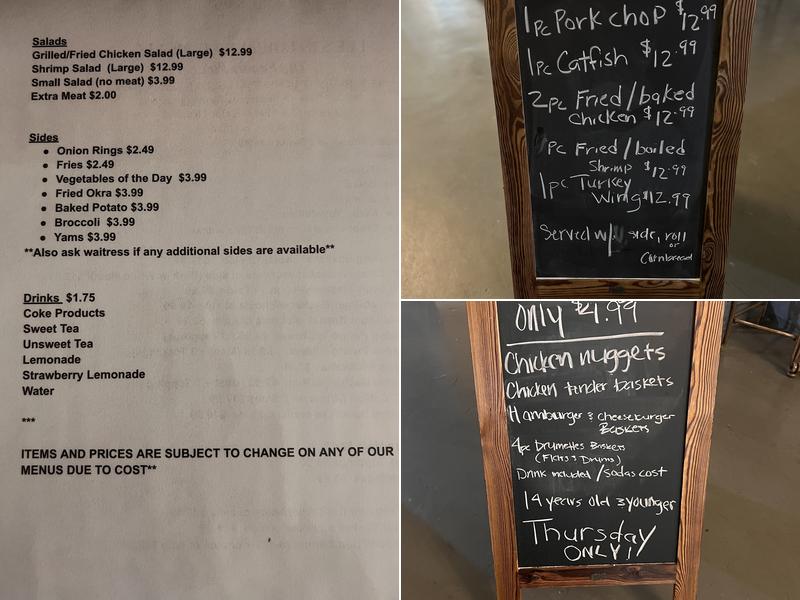 Salads
Grilled/Fried Chicken Salad (Large) $12.99
Shrimp Salad (Large) $12.99
Small Salad (no meat) $3.99
Extra Meat $2.00
Sides
• Onion Rings $2.49
• Fries $2.49
• Vegetables of the Day $3.99
• Fried Okra $3.99
• Baked Potato $3.99
• Broccoli $3.99
• Yams $3.99
**Also ask waitress if any additional sides are available**
Drinks $1.75
Coke Products
Sweet Tea
Unsweet Tea
Lemonade
Strawberry Lemonade
Water
***
ITEMS AND PRICES ARE SUBJECT TO CHANGE ON ANY OF OUR
MENUS DUE TO COST**
1pc Pork chop $12.99
1pc Catfish $12.99
2pc Fried/baked
Chicken $12.99
pc Fried/boiled
Shrimp $12.99
1pc Turkey
Wing $12.99
Served w/ side, roll
or
Cornbread
only $4.99
Chicken nuggets
Chicken tender baskets
Hamburger & cheeseburger
Baskets
4pc Drumettes Baskets
(Flats & Drums)
Drink included/sodas cost
14 years old & younger
Thursday
ONLY!